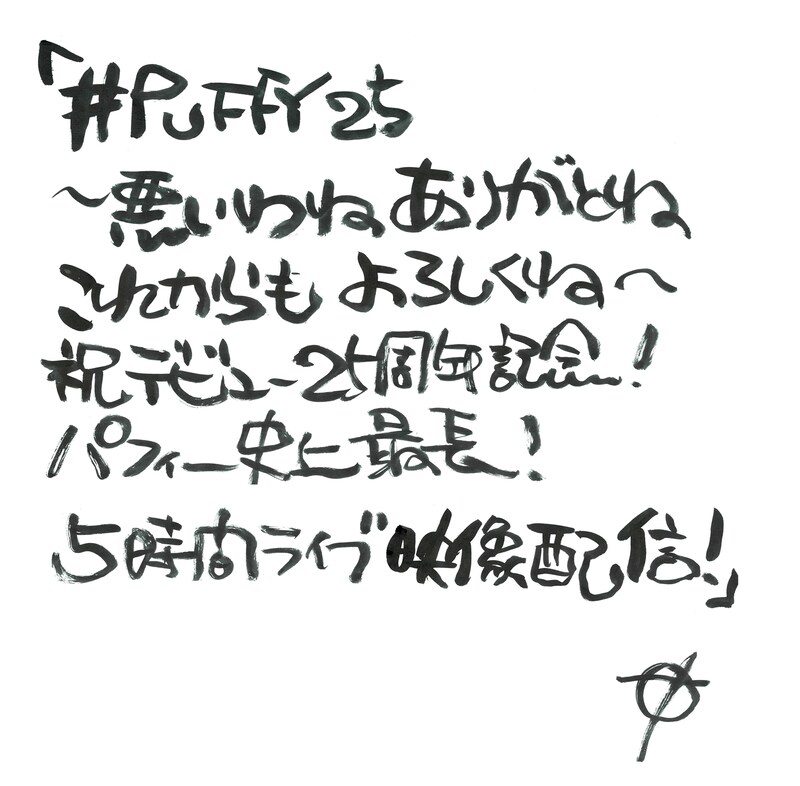 「#PUFFY25
〜悪いわね ありがとね
これからも よろしくね〜
祝デビュー25周年記念!
パフィー史上最長!
5時間ライブ映像配信!」